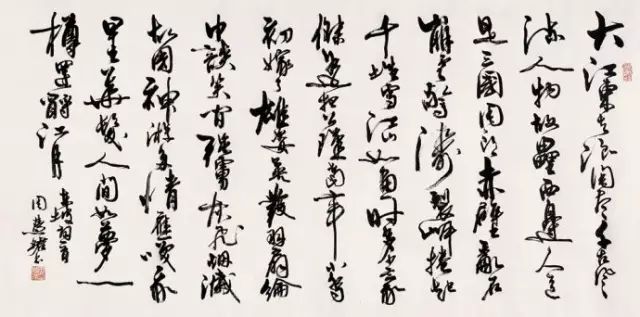 大江東去浪淘盡千古風
流人物故壘西邊人道
是三國周郎赤壁亂石
崩雲驚濤裂岸捲起
千堆雪江山如畫一時多少豪
傑遙想公瑾當年小喬
初嫁了雄姿英發羽扇綸
巾談笑間強虜灰飛煙滅
故國神遊多情應笑我
早生華髮人間如夢一
樽還酹江月
東坡詞一首
周慧珺